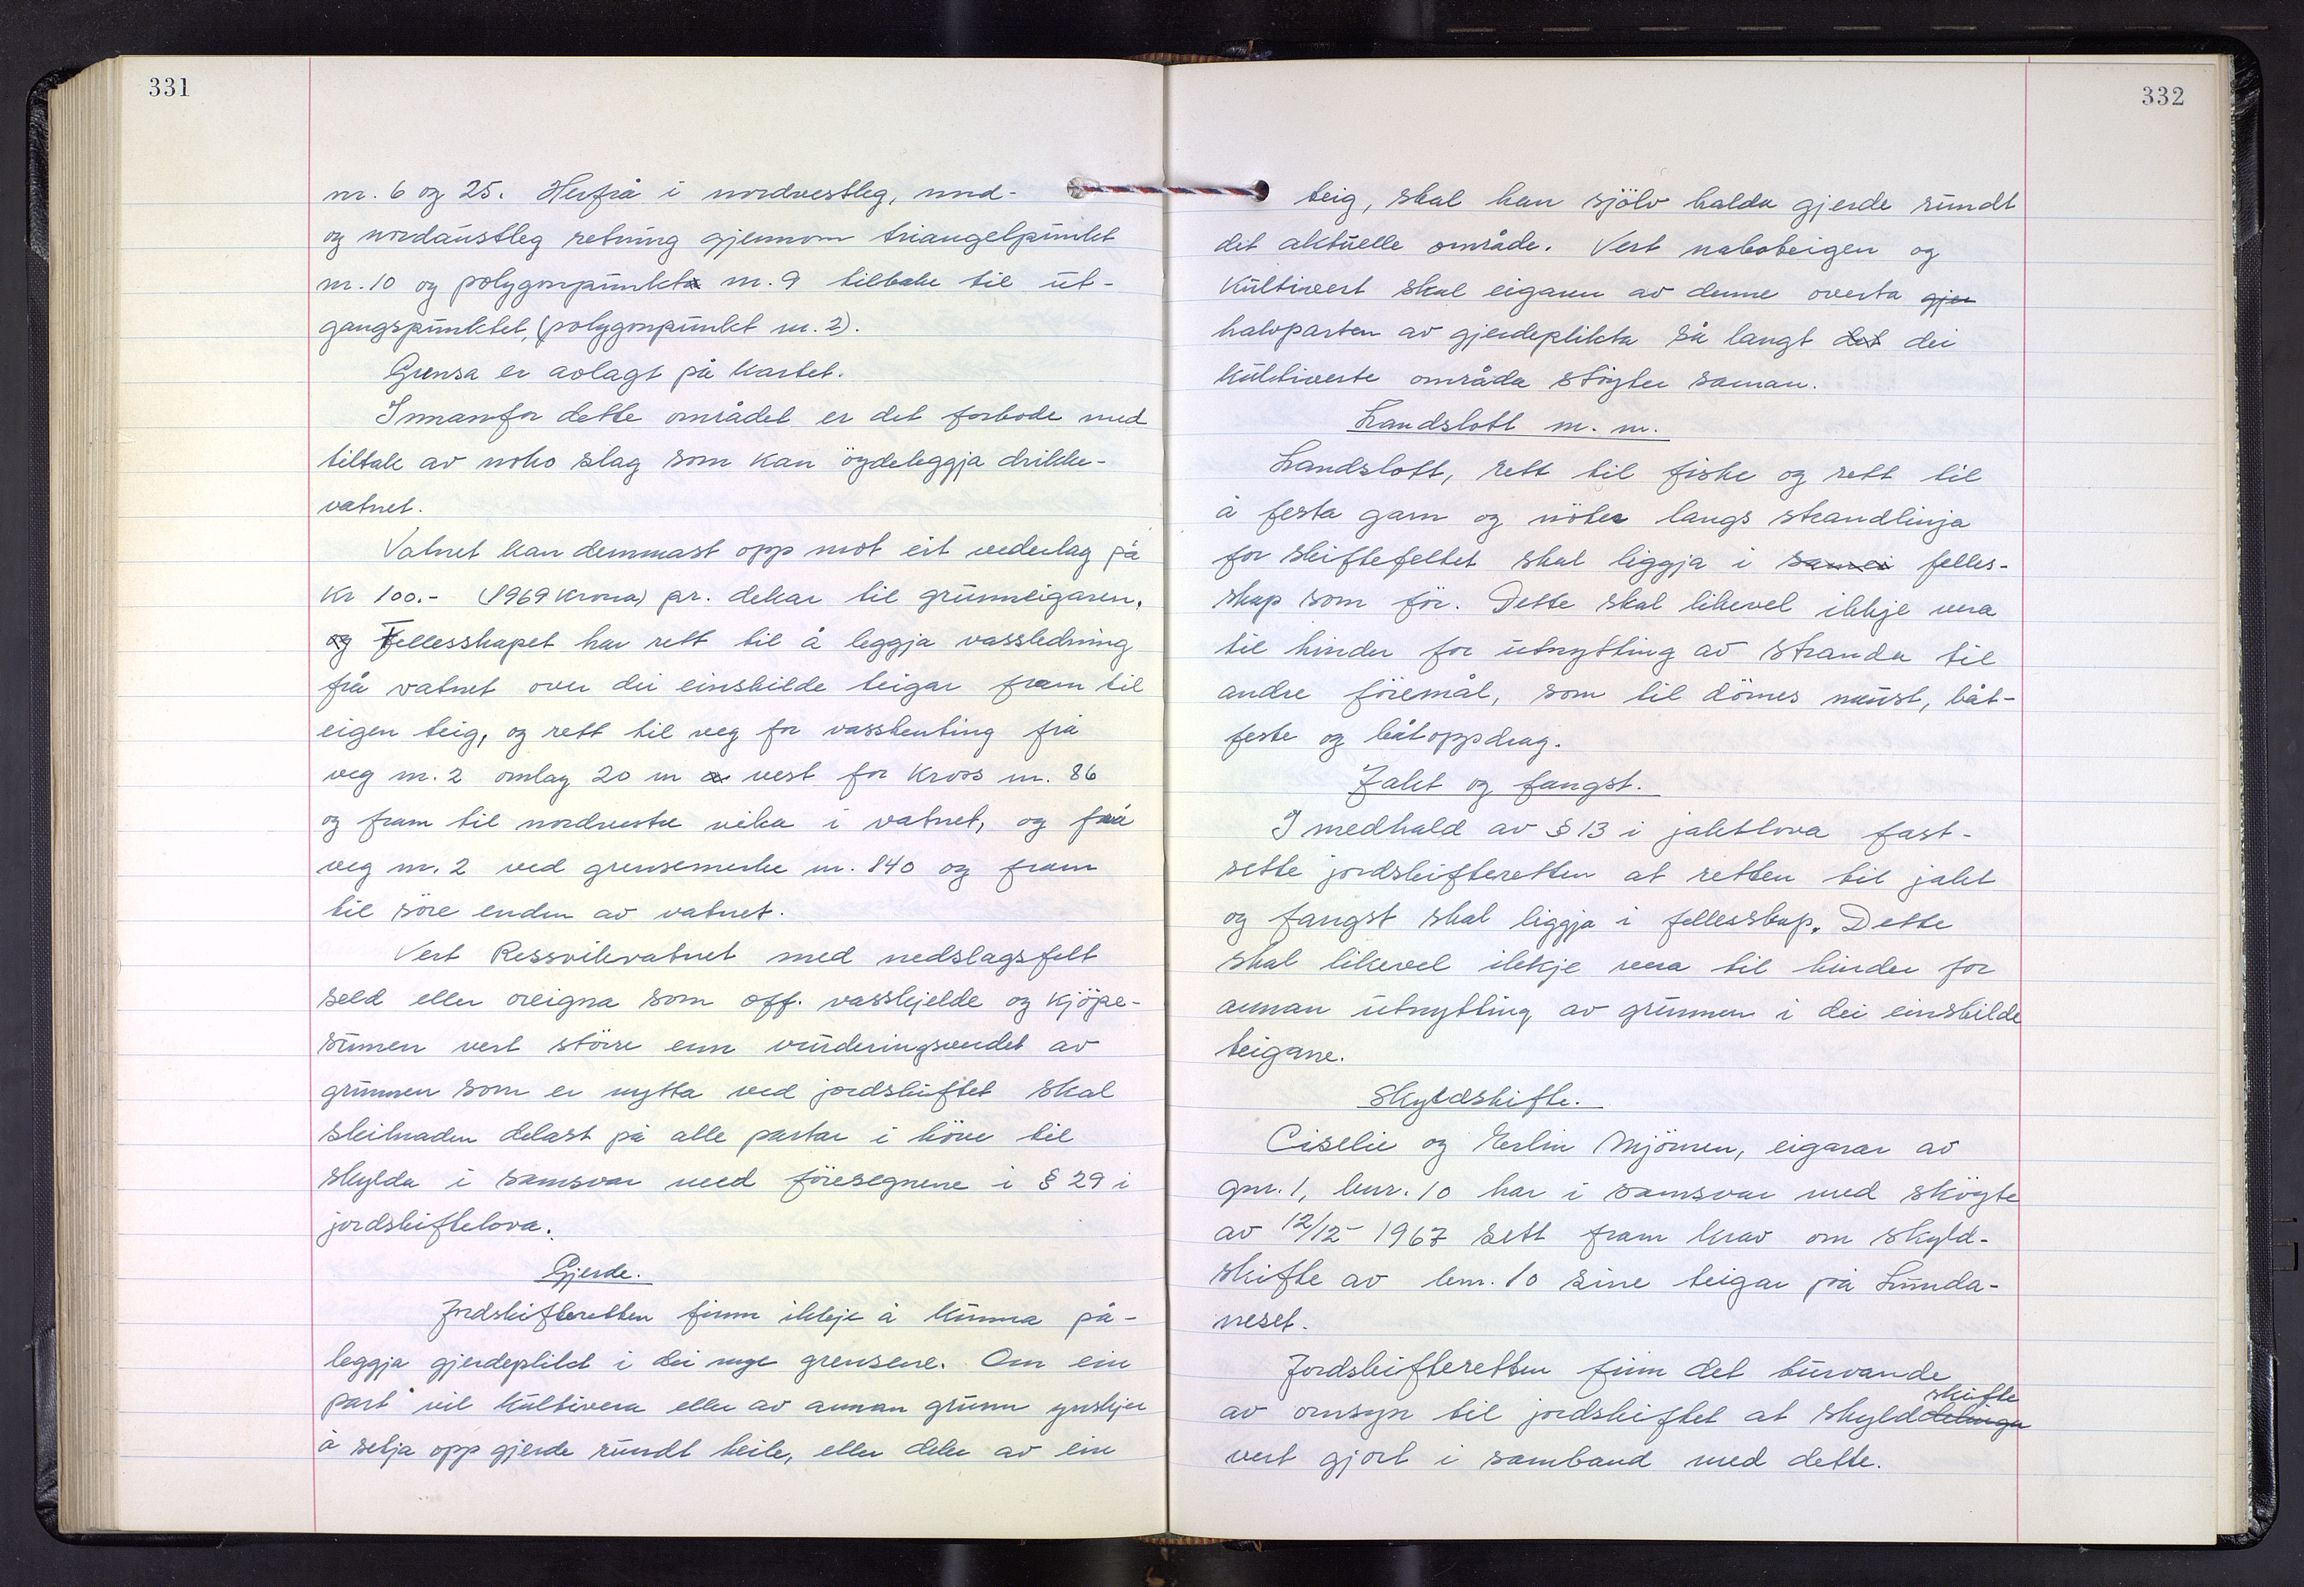 331
nr. 6 og 25. Herfrå i nordvestleg, nord-
og nordaustleg retning gjennom triangelpunkt
nr. 10 og polygonpunkt nr. 9 tilbake til ut-
gangspunktet, (polygonpunkt nr. 2).
Grensa er avlagt på kartet.
Innanfor dette området er det forbode med
tiltak av noko slag som kan öydeleggja drikke-
vatnet.
Vatnet kan demmast opp mot eit vederlag på
Kr 100.- (1969 krona) pr. dekar til grunneigaren.
og Fellesskapet har rett til å leggja vassledning
frå vatnet over dei einskilde teigar fram til
eigen teig, og rett til veg for vasshenting frå
veg nr. 2 omlag 20 m vest for Kross nr. 86
og fram til nordvestre vika i vatnet, og frå
veg nr. 2 ved grensemerke nr. 840 og fram
til söre enden av vatnet.
Vert Ressvikvatnet med nedslagsfelt
seld eller oreigna som off. vasskjelde og kjöpe-
sumen vert större enn vurderingsverdet av
grunnen som er nytta ved jordskiftet skal
skilnaden delast på alle partar i höve til
skylda i samsvar med föresegnene i § 29 i
jordskiftelova.
Gjerde.
Jordskifteretten finn ikkje å kunna på-
leggja gjerdeplikt i dei nye grensene. Om ein
part vil kultivera eller av annan grunn ynskjer
å setja opp gjerde rundt heile, eller deler av ein
332
teig, skal han sjölv halda gjerde rundt
det aktuelle område. Vert naboteigen og
kultivert skal eigaren av denne overta gjer
halvparten av gjerdeplikta så langt det dei
kultiverte områda stöyter saman.
Landslott m. m.
Landslott, rett til fiske og rett til
å festa garn og nöter langs strandlinja
for skiftefeltet skal liggja i felles-
skap som för. Dette skal likevel ikkje vera
til hinder for utnytting av stranda til
andre föremål, som til dömes naust, båt-
feste og båtoppdrag.
Jakt og fangst.
I medhald av § 13 i jaktlova fast-
sette jordskifteretten at retten til jakt
og fangst skal liggja i fellesskap. Dette
skal likevel ikkje vera til hinder for
annan utnytting av grunnen i dei einskilde
teigane.
Skyldskifte.
Ciselie og Erlin Mjömen, eigarar av
gnr. 1, bnr. 10 har i samsvar med sköyte
av 12/12- 1967 sett fram krav om skyld-
skifte av bnr. 10 sine teigar på Lunda-
neset.
Jordskifteretten finn det turvande
skifte
av omsyn til jordskiftet at skylddelinga
vert gjort i samband med dette.